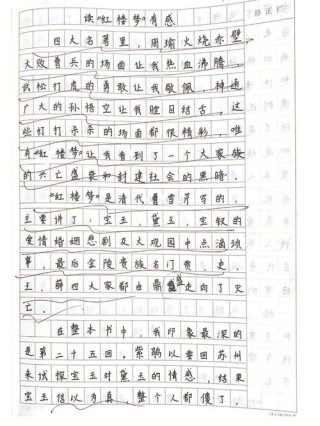 读"红楼梦"有感
四大名著里，周瑜火烧赤壁，
大败曹兵的场面让我热血沸腾，
武松打虎的勇敢让我敬佩，神通
广大的孙悟空让我瞠目结舌，这
些打打杀杀的场面都很精彩，唯
有"红楼梦"让我看到了一个大家族
的兴亡盛衰和封建社会的黑暗。
"红楼梦"是清代曹雪芹写的，
主要讲了：宝玉、黛玉、宝钗的
爱情婚姻悲剧及大观园中点滴琐
事，最后金陵贵族名门贾、史、
王、薛四大家都由鼎盛走向了灭
亡。
在整本书中，我印象最深的
是第二十五回。紫鹃以要回苏州
来试探宝玉对黛玉的情感，结果
宝玉信以为真，整个人都傻了，
修正栏